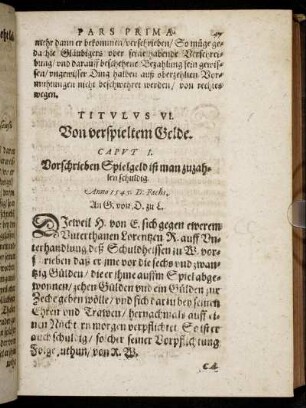 PARS PRIMA.
mehr dann er bekommen / verschrieben / So müge ge-
dachte Gläubigers oder seine habende Verschrei-
bung / und darauf beschehene Bezahlung sein gewis-
sen / ungewisser Ding halben auß oberzehlten Vor-
nichtungen nicht beschwehret werden / von rechts
wegen.
TITVLVS VI.
Von verspieltem Gelde.
CAPVT I.
Vorschrieben Spielgeld ist man zuzah-
len schuldig.
Anno 1545. D. Fachs.
An G. von D. zu L.
DJeweil H. von E. sich gegen ewerem
Unterthanen Lorentzen R. auff Un-
terhandlung deß Schuldheissen zu W. vor-
rieben daß er ihme vor die sechs und zwan-
tzig Gülden / die er ihme auffm Spiel abge-
wonnen / zehen Gülden und ein Gülden zur
Zeche geben wölle / und sich darzu bey seinen
Ehren und Trawen / hernachmals auff ei-
nen Nacht morgen verpflichtet So ist er
auch schuldig / solcher seiner Verpflichtung
Folge zuthun / von R. W.